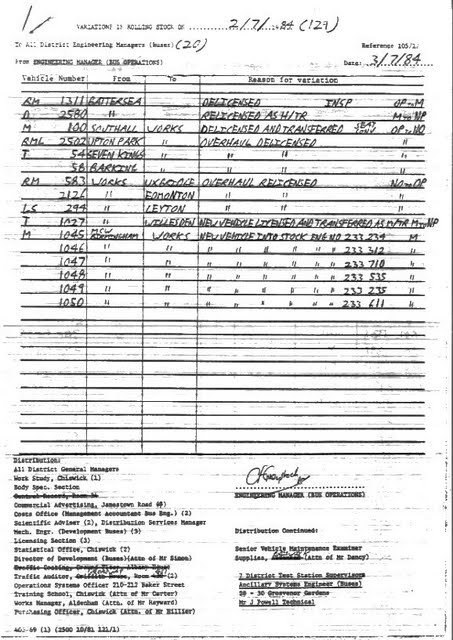 1/
VARIATIONS IN ROLLING STOCK ON 2/7/1984 (129)
To All District Engineering Managers (Buses) (20) Reference 105/1/
From ENGINEERING MANAGER (BUS OPERATIONS) Date: 3/7/84
Vehicle Number From To Reason for variation
RM 1311 BATTERSEA DELICENSED INSP OP to M
D 2580 " RELICENSED AS H/TR M to NP
M 100 SOUTHALL WORKS DELICENSED AND TRANSFERRED OP to NO
RML 2502 UPTON PARK " OVERHAUL DELICENSED "
T 54 SEVEN KINGS " " " "
58 BARKING " " " "
RM 583 WORKS UXBRIDGE OVERHAUL RELICENSED NO to OP
2126 " EDMONTON " " "
LS 294 " LEYTON " " "
T 1027 " WILLESDEN NEW VEHICLE LICENSED AND TRANSFERRED AS H/TR M to NP
M 1045 MCW BIRMINGHAM WORKS NEW VEHICLE INTO STOCK ENG NO 233 234 M
1046 " " " " " " " " 233 312 "
1047 " " " " " " " " 233 710 "
1048 " " " " " " " " 233 535 "
1049 " " " " " " " " 233 235 "
1050 " " " " " " " " 233 611 "
Distribution:
All District General Managers
Work Study, Chiswick (1)
Body Spec. Section
Central Record, Room
ENGINEERING MANAGER (BUS OPERATIONS)
Commercial Advertising, Jamestown Road
Costs Office (Management Accountant Bus Eng.) (2)
Scientific Adviser (2), Distribution Services Manager
Mech. Eng. (Development Buses) (5) Distribution Continued:
Licensing Section (3)
Statistical Office, Chiswick (2) Senior Vehicle Maintenance Examiner
Director of Development (Buses) (Attn of Mr Simon) Supplies, (Attn of Mr Dancy)
Traffic Costing,
Traffic Auditor, Griffith House, Room (2) 7 District Test Station Supervisors
Operations Systems Officer 210-212 Baker Street Ancillary Systems Engineer (Buses)
Training School, Chiswick (Attn of Mr Carter) 28 - 30 Grosvenor Gardens
Works Manager, Aldenham (Attn of Mr Hayward) Mr J Powell Technical
Purchasing Officer, Chiswick (Attn. of Mr Hillier)
403-69 (13) (2500 10/81 121/1)